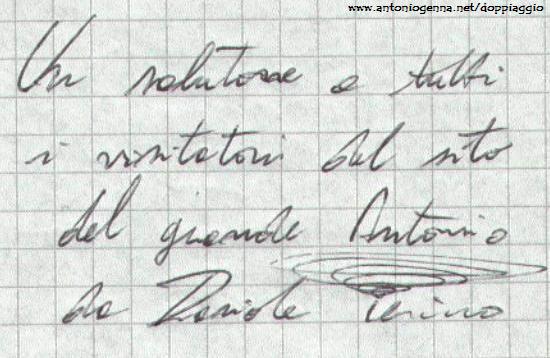 www.antoniogenna.net/doppiaggio
Un salutone a tutti
i visitatori del sito
del grande Antonio
da Daniele